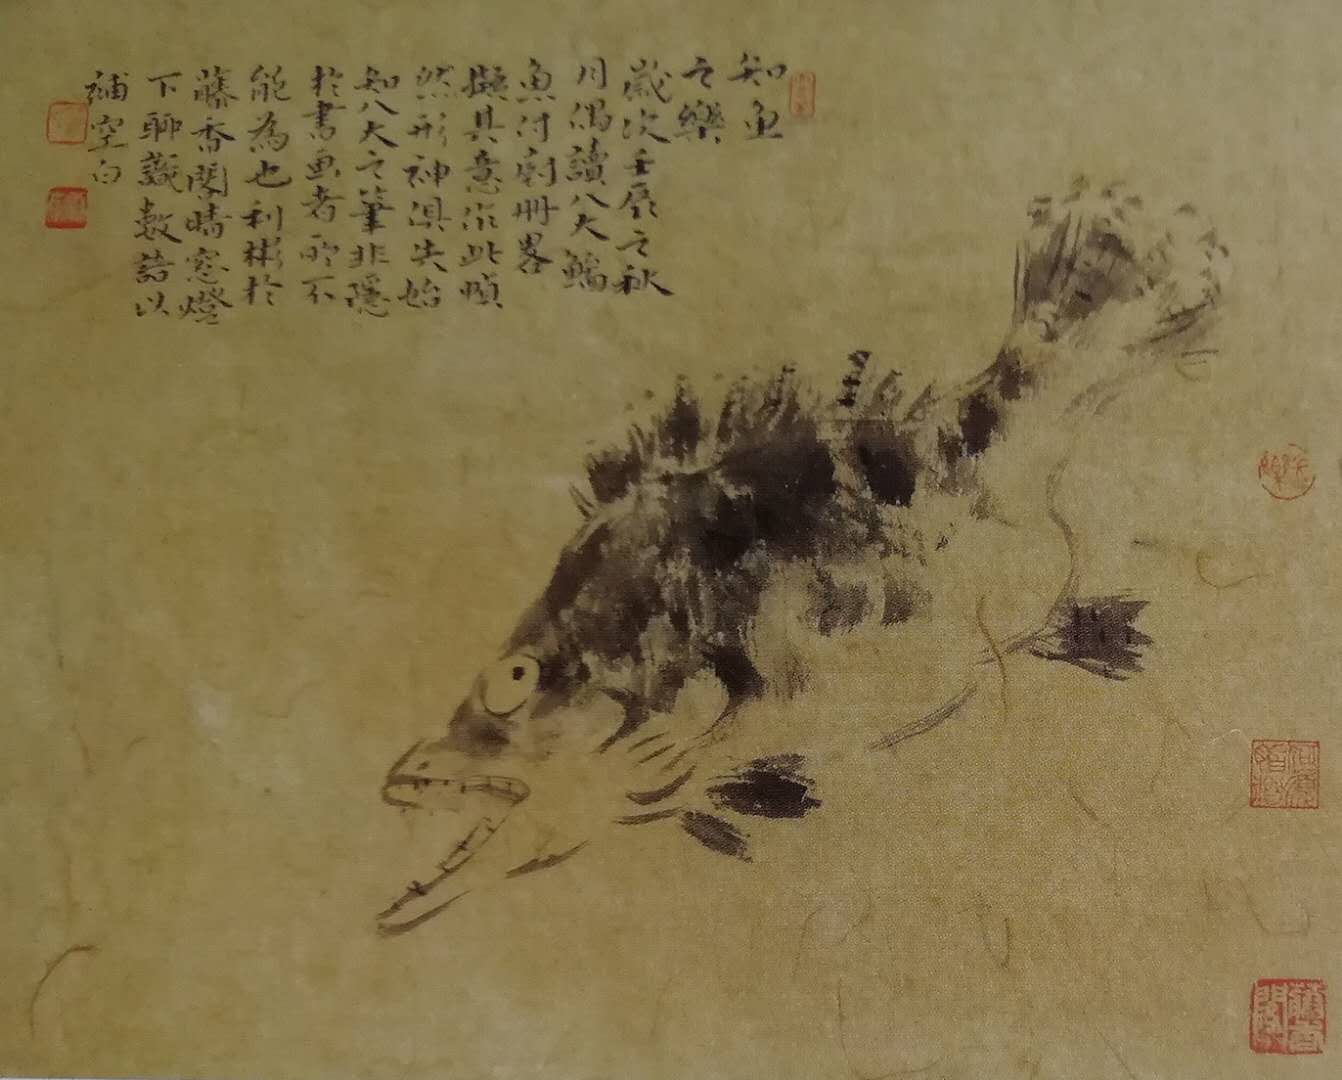 知魚
之樂
歲次壬辰之秋
月偶讀八大
魚付 冊畧
擬其意作此幀
然形神俱失始
知八大之筆非隱
於書画者所不
能為也利彬於
藤香閣晴窓燈
下聊識數語以
補空白
藤香閣